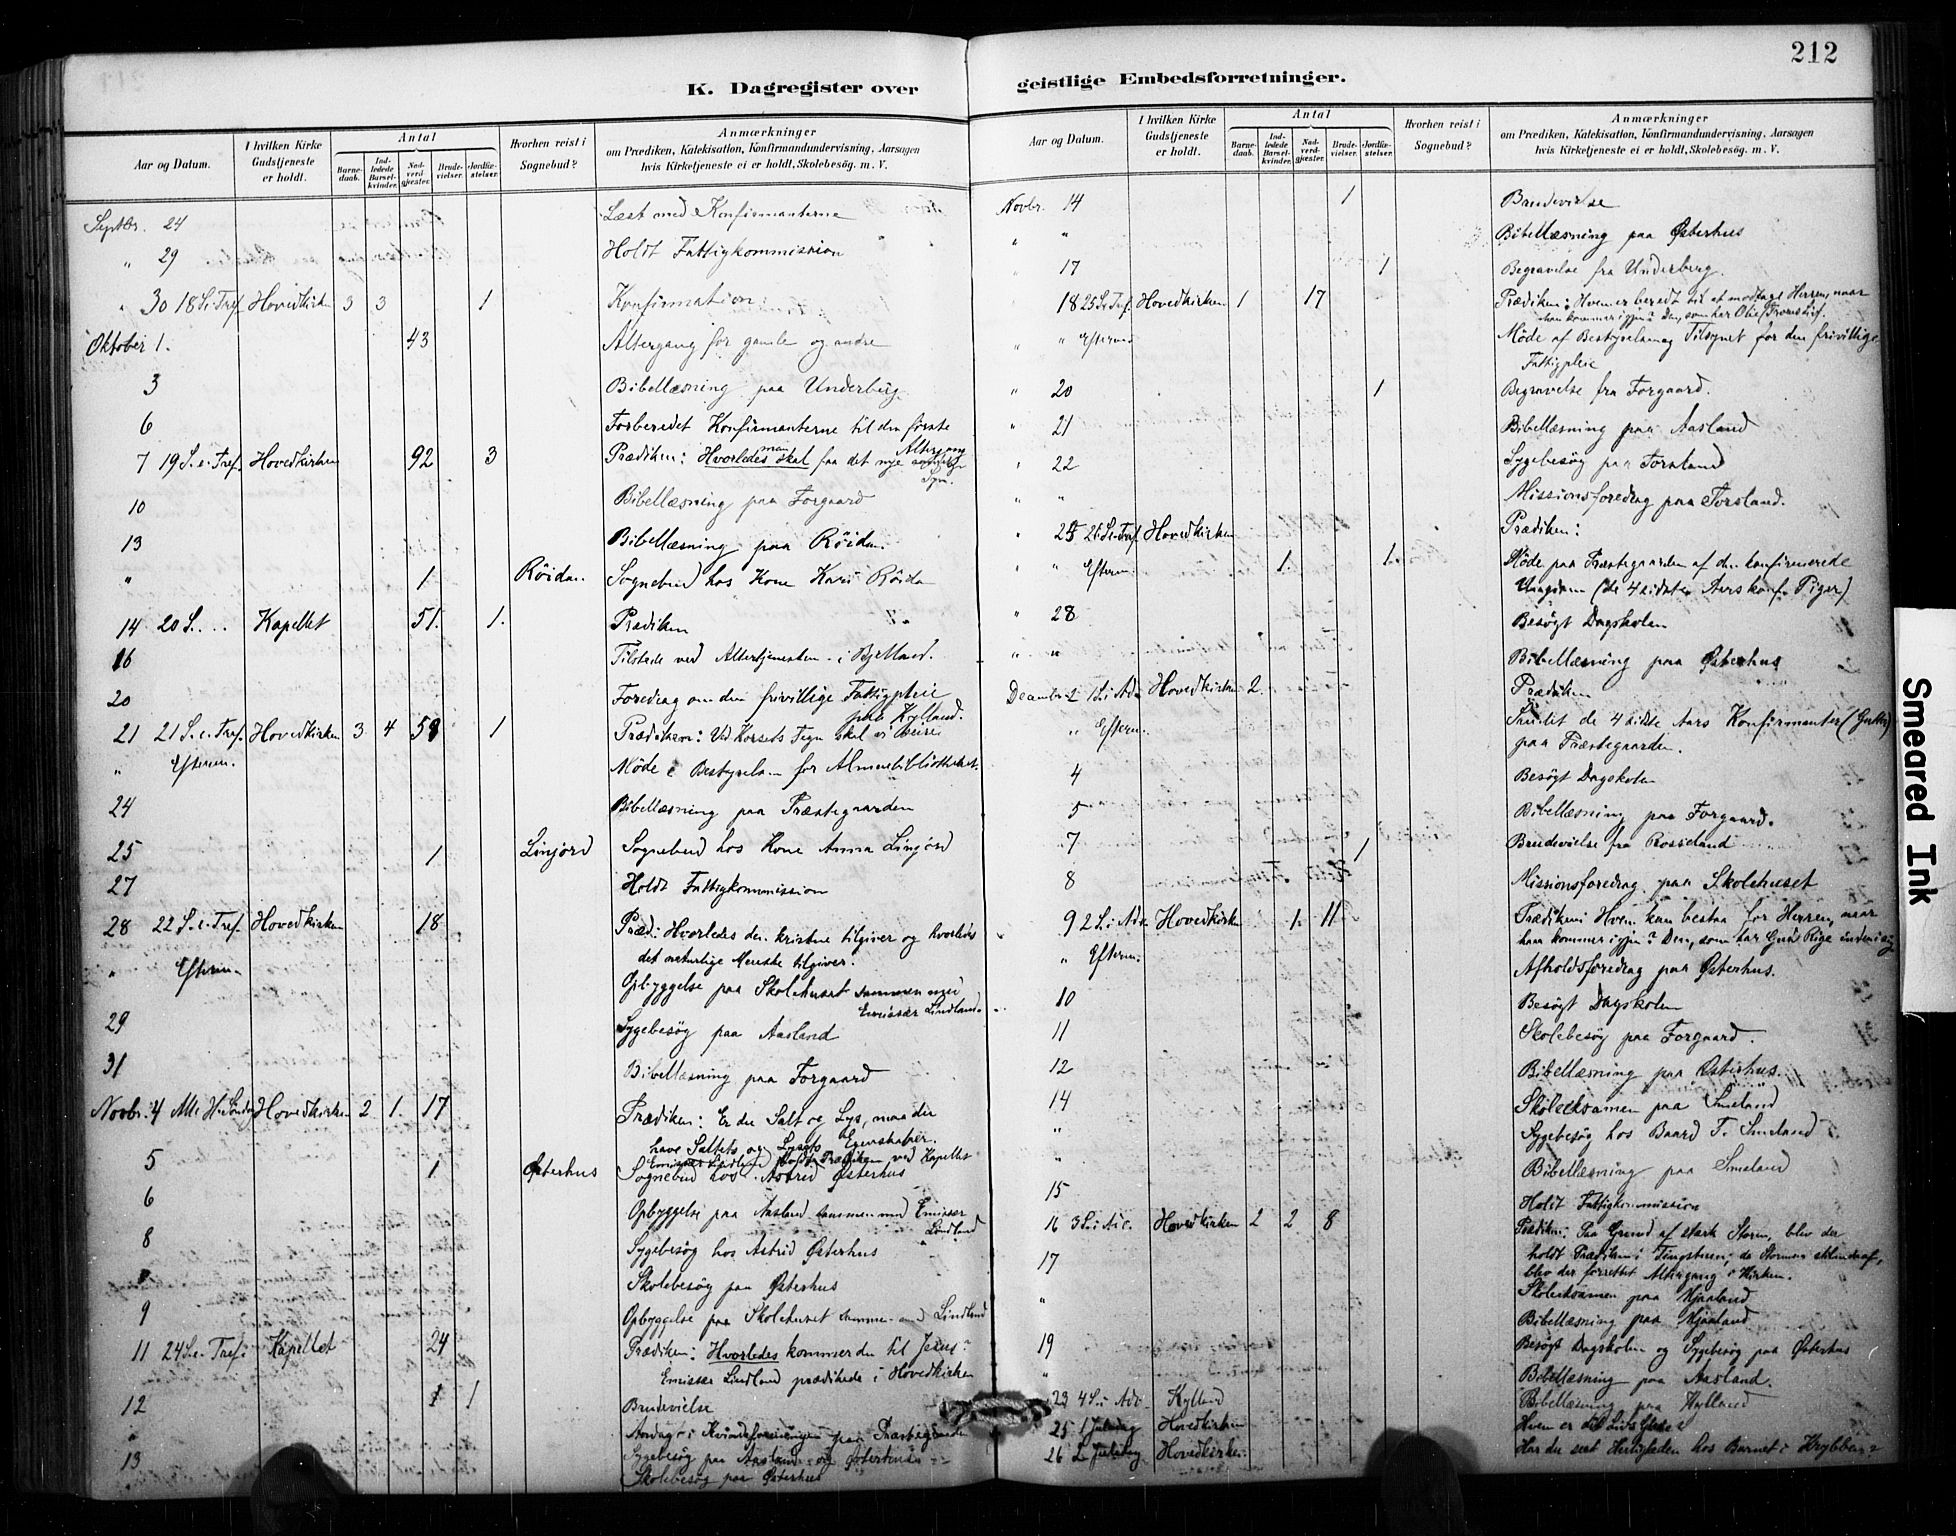 212
K. Dagregister over geistlige Embedsforretninger.
Aar og Datum. I hvilken Kirke Gudstjeneste er holdt. Antal Barnedaab. Indledede Barselkvinder. Nadverdgjester. Brudevielser. Jordfæstelser. Hvorhen reist i Sognebud? Anmærkninger om Prædiken, Katekisation, Konfirmandundervisning, Aarsagen hvis Kirketjeneste ei er holdt, Skolebesøg. m. V.
Septbr. 24 Læst med Konfirmanterne
" 29 Holdt Fattigkommission
" 30 18 S. e. Tref. Hovedkirken 3 3 1 Konfirmation.
Oktober 1. 43 Altergang for gamle og andre
3 Bibellæsning paa Underberg
6 Forberedet Konfirmanterne til den første Altergang
7 19 S. e. Tref. Hovedkirken 92 3 Prædiken: Hvorledes man skal faa det nye Syn.
10 Bibellæsning paa Forgaard
13 Bibellæsning paa Röidan
" 1 Röidan. Sognebud hos Kone Kari Röidan
14 20 S. ... Kapellet 51. 1. Prædiken
16 Tilstede ved Altertjenesten i Bjelland.
20 Foredrag om den frivillige Fattigpleie paa Kylland.
21 21 S. e. Tref. Hovedkirken 3 4 59 1 Prædiken: Ved Korsets Tegn skal vi seire
" Efterm. Møde i Bestyrelsen for Almuebibliotheket.
24 Bibellæsning paa Præstegaarden
25 1 Linjord Sognebud hos Kone Anna Linjord
27 Holdt Fattigkommission
28 22 S. e. Tref. Hovedkirken 18 Præd: Hvorledes den kristne tilgiver og hvorledes
det naturlige Menneske tilgiver.
" Efterm Opbyggelse paa Skolehuset sammen med
Emissær Lindland.
29 Sygebesøg paa Aasland
31 Bibellæsning paa Forgaard
Novbr. 4 Alle H. Søndag Hovedkirken 2 1. 17 Prædiken: Er du Salt og Lys, maa du
have Saltets og Lysets Egenskaber.
Emissær Lindland holdt Prædiken ved Kapellet
5 1 Østerhus Sognebud hos Astrid Østerhus
6 Opbyggelse paa Aasland sammen med Emissær
Lindland
8 Sygebesøg hos Astrid Østerhus
" Skolebesøg paa Østerhus
9 Opbyggelse paa Skolehuset sammen med Lindland
11 24 S. e. Tref. Kapellet 24 Prædiken: Hvorledes kommer du til Jesus?
Emissær Lindland prædikede i Hovedkirken
12 1 1 Brudevielse
" i Kvindeforeningen paa Præstegaarden
13 Sygebesøg paa Aasland og Østerhus
" Skolebesøg paa Østerhus
Aar og Datum. I hvilken Kirke Gudstjeneste er holdt. Antal Barnedaab. Indledede Barselkvinder. Nadverdgjester. Brudevielser. Jordfæstelser. Hvorhen reist i Sognebud? Anmærkninger om Prædiken, Katekisation, Konfirmandundervisning, Aarsagen hvis Kirketjeneste ei er holdt, Skolebesøg. m. V.
Novbr. 14 1 Brudevielse
" " Bibellæsning paa Østerhus
" 17 1 Begravelse fra Underberg.
18 25 S. e. Tref. Hovedkirken 1 17 Prædiken: Hvem er beredt til at modtage Herren, naar
han kommer igjen? Den, som har Olie
" " Efterm Møde af Bestyrelsen og Tilsynet for den frivillige
Fattigpleie
" 20 1 Begravelse fra Forgaard.
" 21 Bibellæsning paa Aasland
" 22 Sygebesøg paa Torsland
" " Missionsforedrag paa Torsland.
" 25 26 S. e. Tref. Hovedkirken Prædiken:
" " Efterm 1. 1. Møde paa Præstegaarden af den konfirmerede
Ungdom (de 4 sidste Aars konf. Piger)
" 28 Besøgt Dagskolen
" " Bibellæsning paa Østerhus
December 2 1 S. i Adv Hovedkirken 2. Prædiken
" Efterm. Samlet de 4 sidste Aars Konfirmanter (Gutter)
paa Præstegaarden.
4 Besøgt Dagskolen
5 Bibellæsning paa Forgaard.
7 1 Brudevielse fra Rosseland
8 Missionsforedrag paa Skolehuset
9 2 S. i Adv. Hovedkirken 1. 11 Prædiken: Hvem kan bestaa for Herren, naar
han kommer igjen? Den, som har Guds Rige inden i sig
" Efterm. Afholdsforedrag paa Østerhus.
10 Besøgt Dagskolen
11 Skolebesøg paa Forgaard.
12 Bibellæsning paa Østerhus.
14 Skoleeksamen paa Smeland
" Sygebesøg hos Baard T. Smeland
" Bibellæsning paa Smeland
15 Holdt Fattigkommission
16 3 S. i Adv. Hovedkirken 2 2 8 Prædiken: Paa Grund af stærk Storm, blev der
holdt Prædiken i Tingstuen; da Stormen stilnede af,
blev der forrettet Altergang i Kirken.
17 Skoleeksamen paa Hjaaland
" Bibellæsning paa Hjaaland
19 Besøgt Dagskolen og Sygebesøg paa Østerhus
" Bibellæsning paa Aasland.
23 4 S. i Adv. Kylland Bibellæsning paa Kylland
25 1 Juledag Hovedkirken Hvem er
26 2 Juledag Hovedkirken. Har du seet Herligheden hos Barnet i Krybben?
Smeared Ink